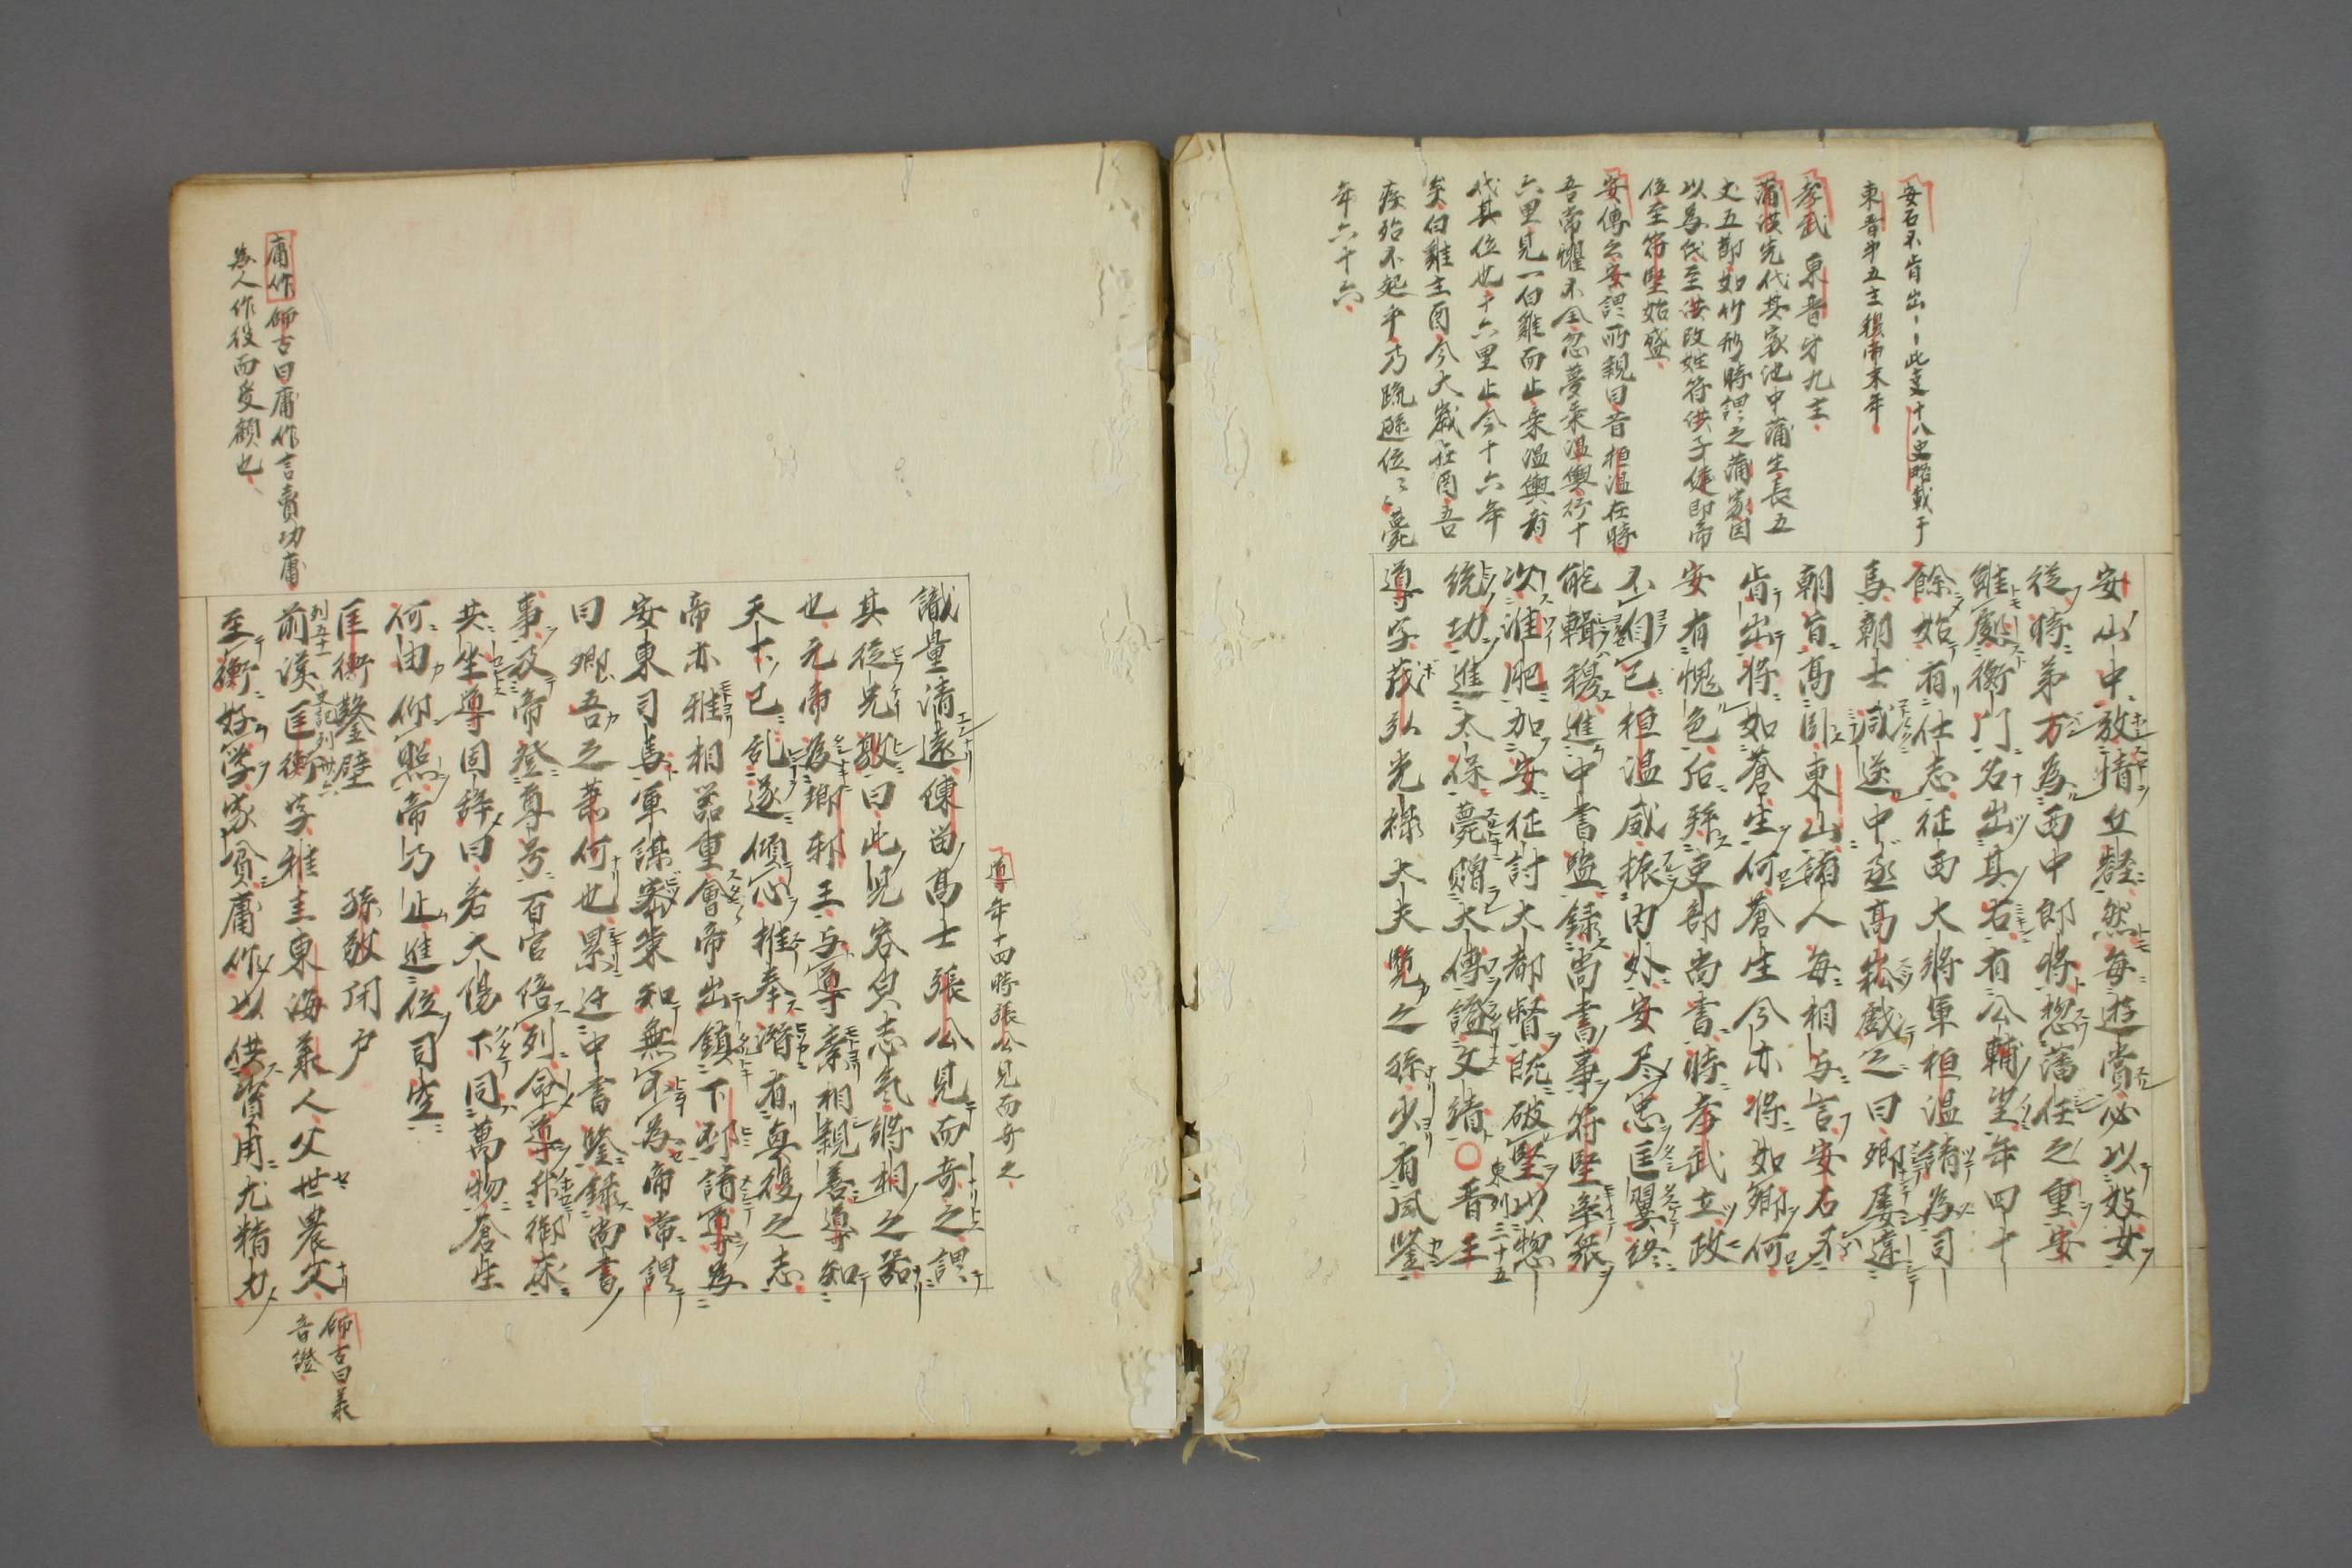 安石不肯出〻此支十八史略載于
東晋第五主穆帝末年
孝武　東晋第九主
蒲洪先代其家池中蒲生長五
丈五節如竹形時謂之蒲家因
以爲氏至洪改姓苻洪子健即帝
位至苻堅始盛
安傳云安謂所親曰昔桓温在時
吾常懼不全忽夢乘温輿行十
六里見一白雞而止乘温輿者
代其位也十六里止今十六年
矣白雞主酉今大歳在酉吾
疾殆不起乎乃疏遜位〻薨
年六十六
安山中放情丘壑然毎遊賞必以妓女
従時弟万為西中郎將揔藩任之重安
雖處衡門名出其右有公輔望年四十
餘始有仕志征西大将軍桓温請為司
馬朝士咸送中丞高崧戯之曰卿屡違
朝旨高臥東山諸人毎相与言安石不
肯出将如蒼生何蒼生今亦将如卿何
安有愧色后拜吏部尚書時孝武立政
不自已桓温威振内外安尽忠匡翼終
能輯穆進中書監録尚書事苻堅率衆
次淮肥加安征討大都督既破堅以惣
統功進太保薨贈大傅謚文靖〇晋王
東列三十五
導字茂弘光禄大夫覽之孫少有風鑒
導年十四時張公見而奇之
識量清遠陳留高士張公見而奇之謂
其従兄敦曰此児容皃志氣将相之器
也元帝為瑯邪王与導素相親善導知
天下已乱遂傾心推奉潜有興復之志
帝亦雅相器重會帝出鎮下邳請導為
安東司馬軍謀密策知無不為帝常謂
曰卿吾之蕭何也累迁中書監録尚書
事及帝登尊号百官倍列命導升御床
共坐導固辞曰若大陽下同萬物蒼生
何由仰照帝乃止進位司空
匡衡鑿壁　孫敬閉戸
列五十一　史記列卅六
前漢匡衡字稚圭東海承人父世農夫
至衡好学家貧庸作以供資用尤精力
庸作師古曰庸作言賣功庸
為人作役而受顧也
師古曰承
音證